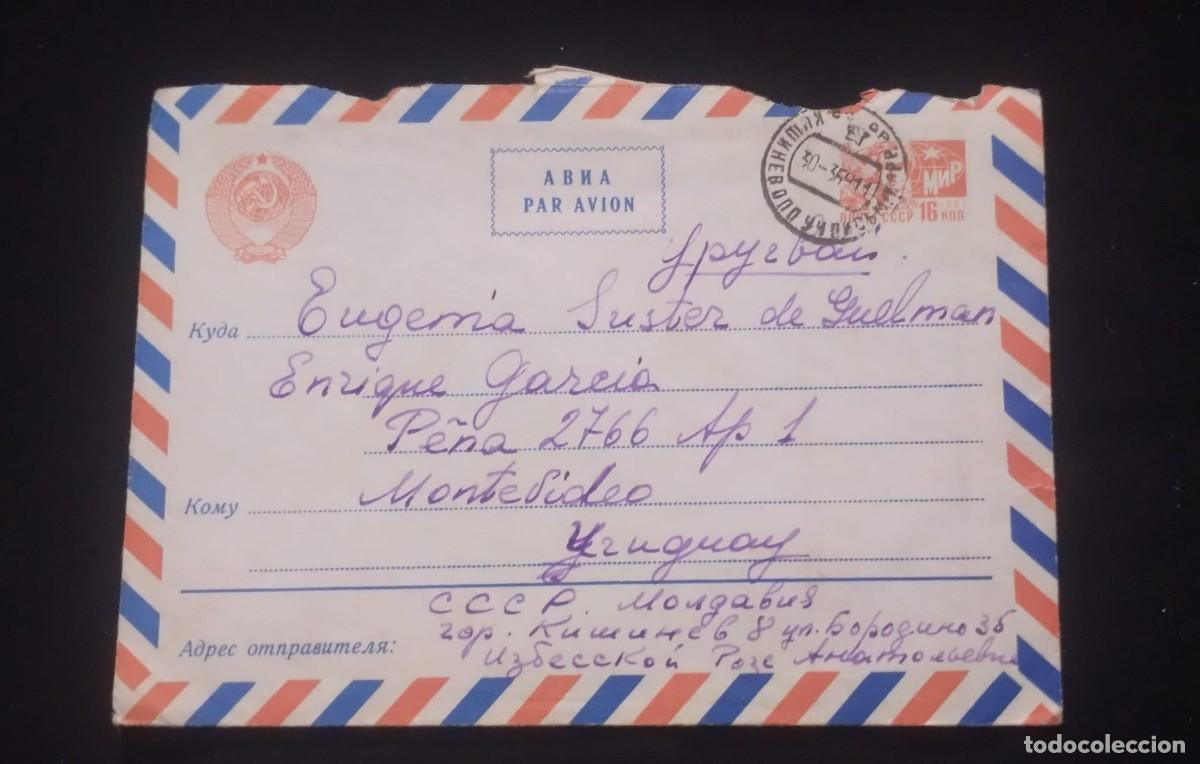 АВИА
PAR AVION
МИР
ПОЧТА СССР 16 КОП.
КИШИНЕВ
Уругвай.
Куда Eugenia Suster de Gudlman
Enrique Garcia
Peña 2766 Ap 1
Кому Montevideo
Uruguay
СССР. Молдавия
Адрес отправителя: гор. Кишинев 8 ул. Бородино 36
Избесской Розе Анатольевне
todocoleccion